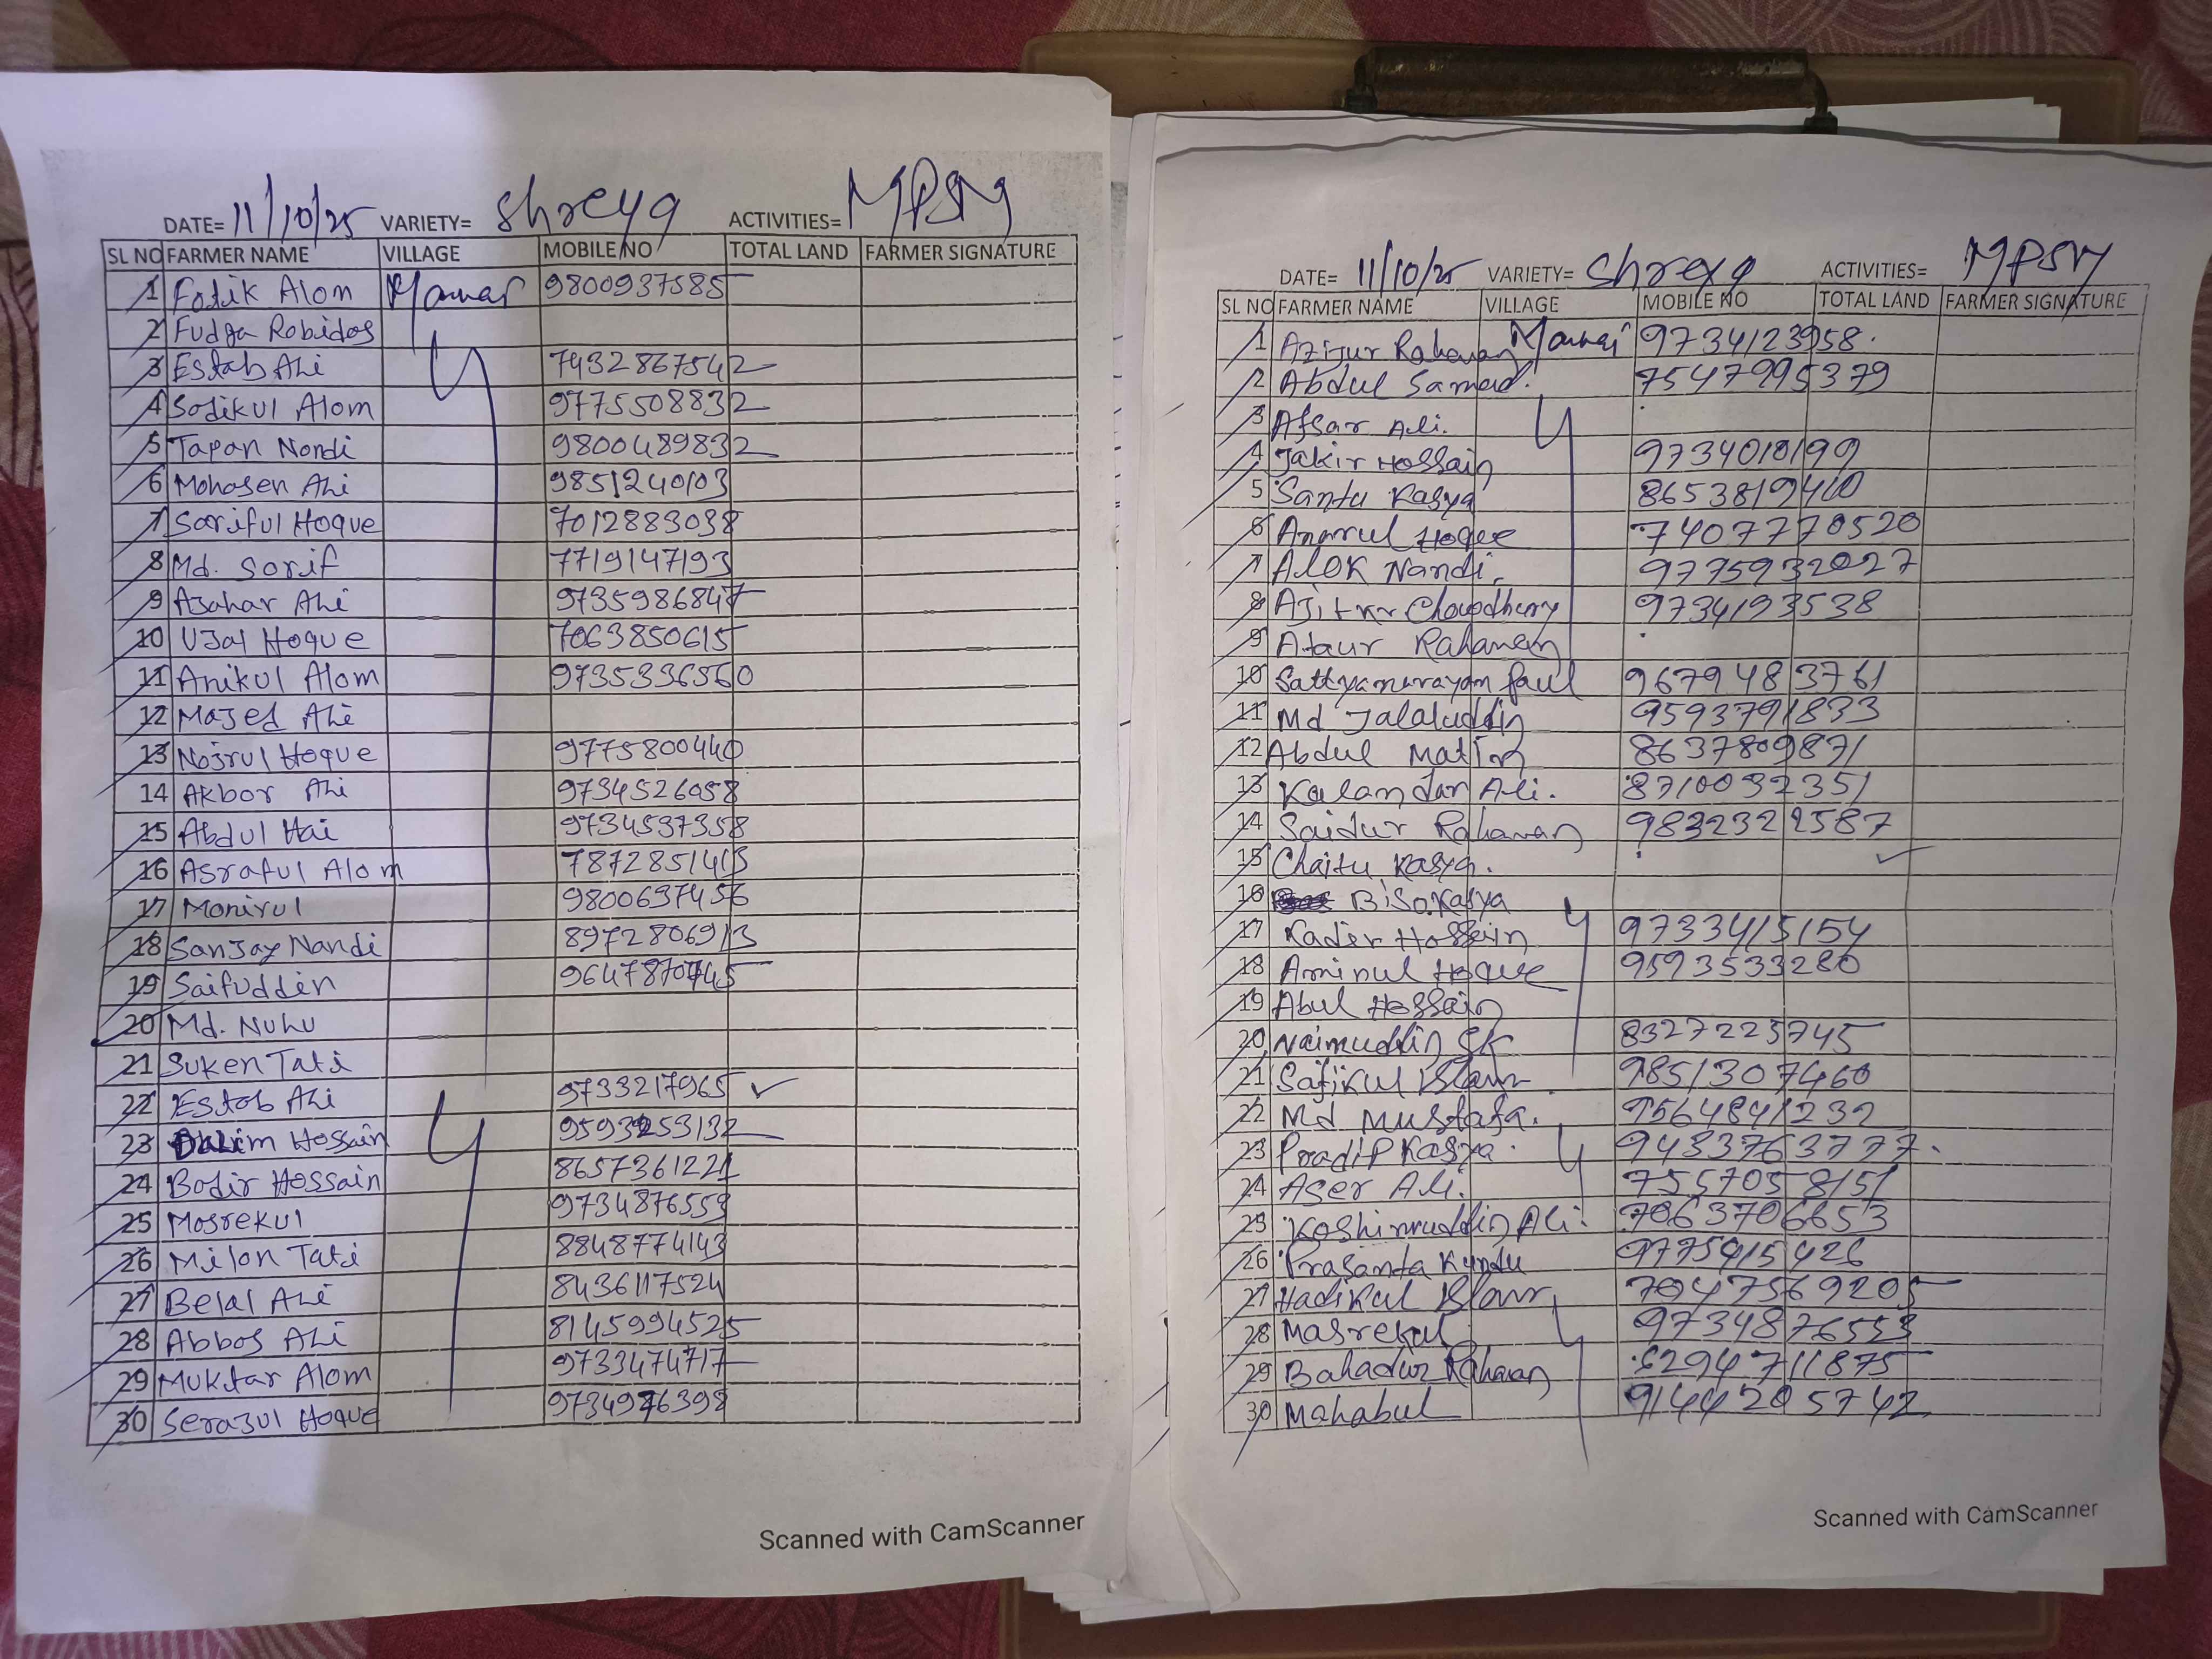 DATE= 11/10/25 VARIETY= Shreya ACTIVITIES= MPSM
SL NO FARMER NAME VILLAGE MOBILE NO TOTAL LAND FARMER SIGNATURE
1 Fotik Alom 9800937585
2 Fudga Robidas
3 Estab Ali 7432867542
4 Sodikul Alom 9775508832
5 Tapan Nondi 9800489832
6 Mohosen Ali 9851240103
7 Soriful Hoque 7012883038
8 Md. Sorif 7719147193
9 Azahar Ali 9735986847
10 UJal Hoque 7063850615
11 Anikul Alom 9735336560
12 Majed Ali
13 Nojrul Hoque 9775800440
14 Akbor Ali 9734526058
15 Abdul Hai 9734537358
16 Asraful Alom 7872851413
17 Monirul 9800637456
18 Sanjay Nandi 8972806913
19 Saifuddin 9647870745
20 Md. Nuhu
21 Suken Tati
22 Estob Ali 9733217965 ✓
23 Dalim Hossain 9593253132
24 Bodir Hossain 8657361221
25 Mosrekul 9734876553
26 Milon Tati 8848774143
27 Belal Ali 8436117524
28 Abbos Ali 8145994525
29 Muktar Alom 9733474717
30 Serazul Hoque 9734976398
Scanned with CamScanner
DATE= 11/10/25 VARIETY= Shreya ACTIVITIES= MPSM
SL NO FARMER NAME VILLAGE MOBILE NO TOTAL LAND FARMER SIGNATURE
1 Azijur Rahaman 9734123958.
2 Abdul Samad. 7547995379
3 Afsar Ali.
4 Jakir Hossain 9734010199
5 Santu Kasya 8653819410
6 Anarul Hoque 7407770520
7 Alok Nandi. 9775932027
8 Ajit kr Chowdhury 9734193538
9 Ataur Rahaman
10 Sattyanarayan Paul 9679483761
11 Md Jalaluddin 9593791833
12 Abdul Matin 8637809871
13 Kalandar Ali. 8710032351
14 Saidur Rahaman 9832322587
15 Chaitu Kasya. ✓
16 Biso Kasya
17 Kader Hossain 9733415154
18 Aminul Hoque 9593533280
19 Abul Hossain
20 Naimuddin SK 8327223745
21 Safikul Islam 9851307460
22 Md Mustafa. 9564841232
23 Pradip Kasya. 9483763777.
24 Aser Ali. 7557058151
25 Koshimuddin Ali. 7063706653
26 Prasanta Kundu 9775415426
27 Hadikul Islam 7047569205
28 Masrekul 9734876553
29 Bahadur Rahaman 6294711875
30 Mahabul 9144205742
Scanned with CamScanner